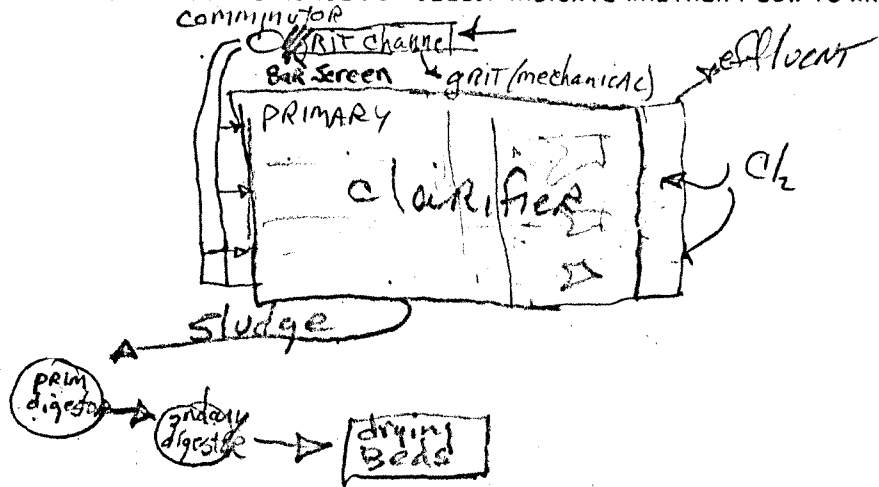 COMMINUTOR
GRIT Channel
BAR Screen
gRIT (mechanicAL)
effluent
PRIMARY
Clairifier
Cl2
Sludge
PRIM
digestor
2ndary
digester
drying
Beds